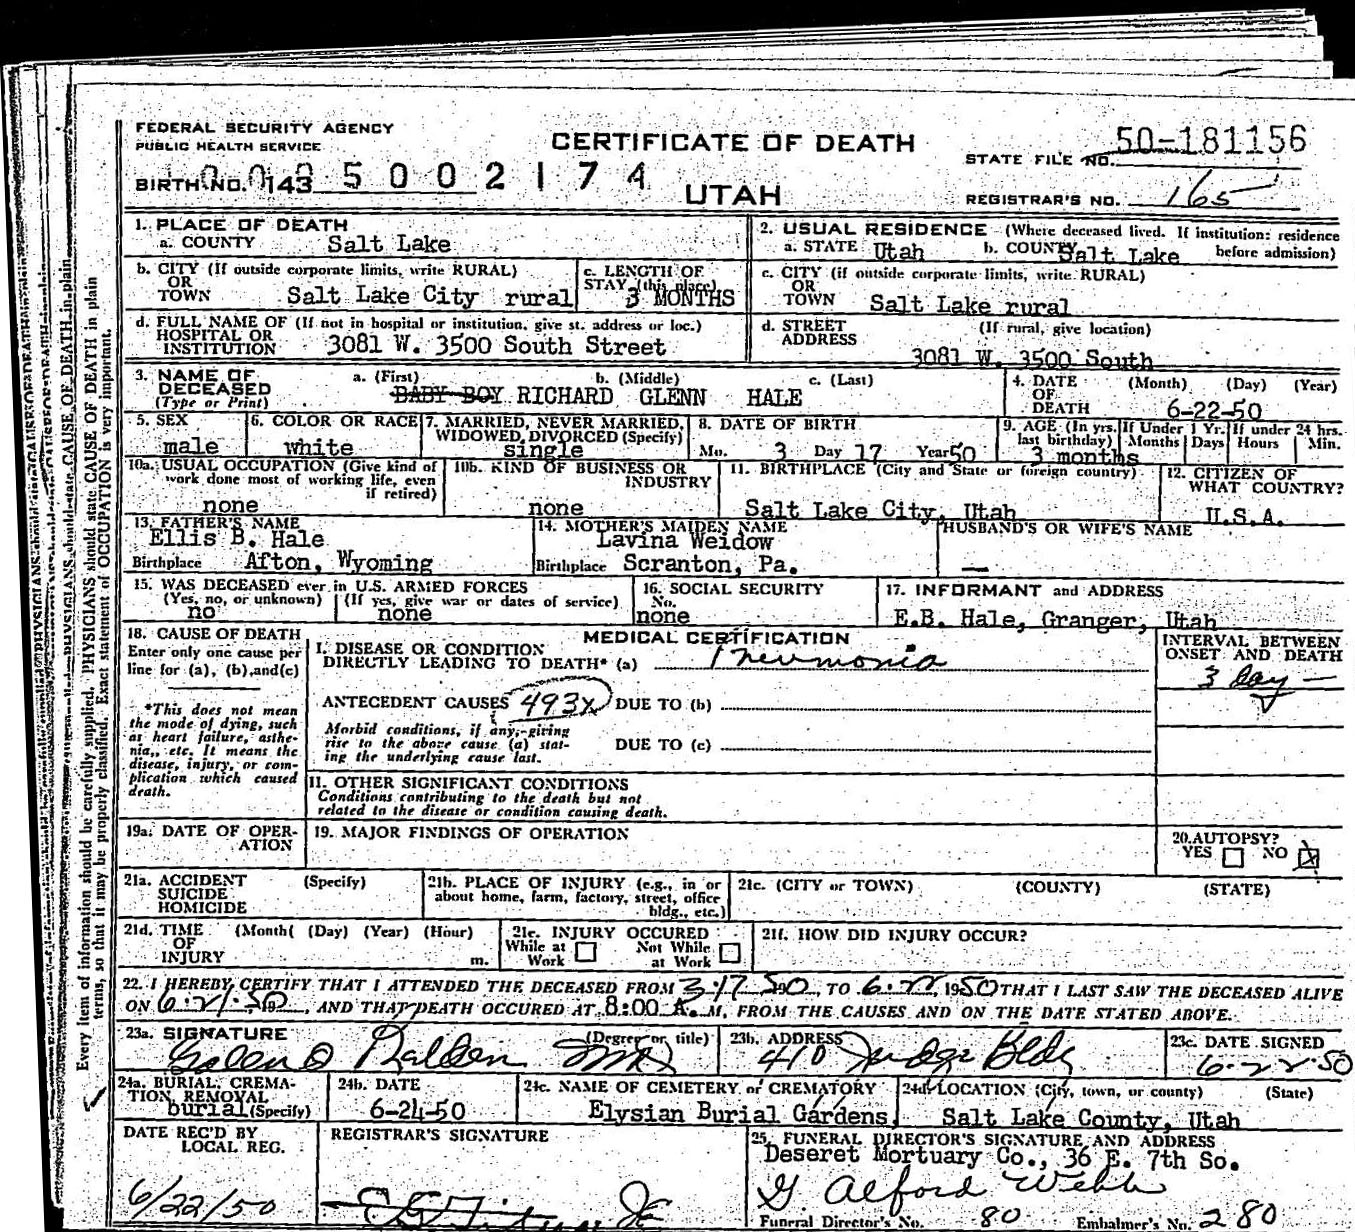 FEDERAL SECURITY AGENCY
PUBLIC HEALTH SERVICE
CERTIFICATE OF DEATH
STATE FILE NO. 50-181156
BIRTH NO. 143 5002174
UTAH
REGISTRAR'S NO. 165
1. PLACE OF DEATH
a. COUNTY Salt Lake
2. USUAL RESIDENCE (Where deceased lived. If institution: residence before admission)
a. STATE Utah b. COUNTY Salt Lake
b. CITY (If outside corporate limits, write RURAL) OR TOWN Salt Lake City rural
c. LENGTH OF STAY (this place) 3 MONTHS
c. CITY (if outside corporate limits, write RURAL) OR TOWN Salt Lake rural
d. FULL NAME OF (If not in hospital or institution, give st. address or loc.) HOSPITAL OR INSTITUTION 3081 W. 3500 South Street
d. STREET ADDRESS (If rural, give location) 3081 W. 3500 South
3. NAME OF DECEASED (Type or Print) a. (First) b. (Middle) c. (Last)
BABY BOY RICHARD GLENN HALE
4. DATE OF DEATH (Month) (Day) (Year) 6-22-50
5. SEX male
6. COLOR OR RACE white
7. MARRIED, NEVER MARRIED, WIDOWED, DIVORCED (Specify) single
8. DATE OF BIRTH Mo. 3 Day 17 Year 50
9. AGE (In yrs. last birthday) If Under 1 Yr. Months Days If under 24 hrs. Hours Min. 3 months
10a. USUAL OCCUPATION (Give kind of work done most of working life, even if retired) none
10b. KIND OF BUSINESS OR INDUSTRY none
11. BIRTHPLACE (City and State or foreign country) Salt Lake City, Utah
12. CITIZEN OF WHAT COUNTRY? U.S.A.
13. FATHER'S NAME Ellis B. Hale
Birthplace Afton, Wyoming
14. MOTHER'S MAIDEN NAME Lavina Weidow
Birthplace Scranton, Pa.
HUSBAND'S OR WIFE'S NAME —
15. WAS DECEASED ever in U.S. ARMED FORCES
(Yes, no, or unknown) no (If yes, give war or dates of service) none
16. SOCIAL SECURITY No. none
17. INFORMANT and ADDRESS E.B. Hale, Granger, Utah
18. CAUSE OF DEATH
Enter only one cause per line for (a), (b), and (c)
*This does not mean the mode of dying, such as heart failure, asthenia, etc. It means the disease, injury, or complication which caused death.
MEDICAL CERTIFICATION
I. DISEASE OR CONDITION DIRECTLY LEADING TO DEATH* (a) Pneumonia
INTERVAL BETWEEN ONSET AND DEATH
3 day —
ANTECEDENT CAUSES 493x DUE TO (b)
Morbid conditions, if any, giving rise to the above cause (a) stating the underlying cause last.
DUE TO (c)
II. OTHER SIGNIFICANT CONDITIONS
Conditions contributing to the death but not related to the disease or condition causing death.
19a. DATE OF OPERATION
19. MAJOR FINDINGS OF OPERATION
20. AUTOPSY?
YES NO X
21a. ACCIDENT SUICIDE HOMICIDE (Specify)
21b. PLACE OF INJURY (e.g., in or about home, farm, factory, street, office bldg., etc.)
21c. (CITY or TOWN) (COUNTY) (STATE)
21d. TIME OF INJURY (Month( (Day) (Year) (Hour) m.
21e. INJURY OCCURED While at Work Not While at Work
21f. HOW DID INJURY OCCUR?
22. I HEREBY CERTIFY THAT I ATTENDED THE DECEASED FROM 3-17 50, TO 6-22, 1950 THAT I LAST SAW THE DECEASED ALIVE
ON 6-21-50, AND THAT DEATH OCCURED AT 8:00 A. M, FROM THE CAUSES AND ON THE DATE STATED ABOVE.
23a. SIGNATURE (Degree or title)
23b. ADDRESS 410 Judge Bldg
23c. DATE SIGNED 6-22-50
24a. BURIAL, CREMATION, REMOVAL (Specify) burial
24b. DATE 6-24-50
24c. NAME OF CEMETERY or CREMATORY Elysian Burial Gardens,
24d. LOCATION (City, town, or county) (State) Salt Lake County, Utah
DATE REC'D BY LOCAL REG. 6/22/50
REGISTRAR'S SIGNATURE
25. FUNERAL DIRECTOR'S SIGNATURE AND ADDRESS
Deseret Mortuary Co., 36 E. 7th So.
G Alford Webb
Funeral Director's No. 80 Embalmer's No. 280
Every item of information should be carefully supplied. PHYSICIANS should state CAUSE OF DEATH in plain
terms, so that it may be properly classified. Exact statement of OCCUPATION is very important.